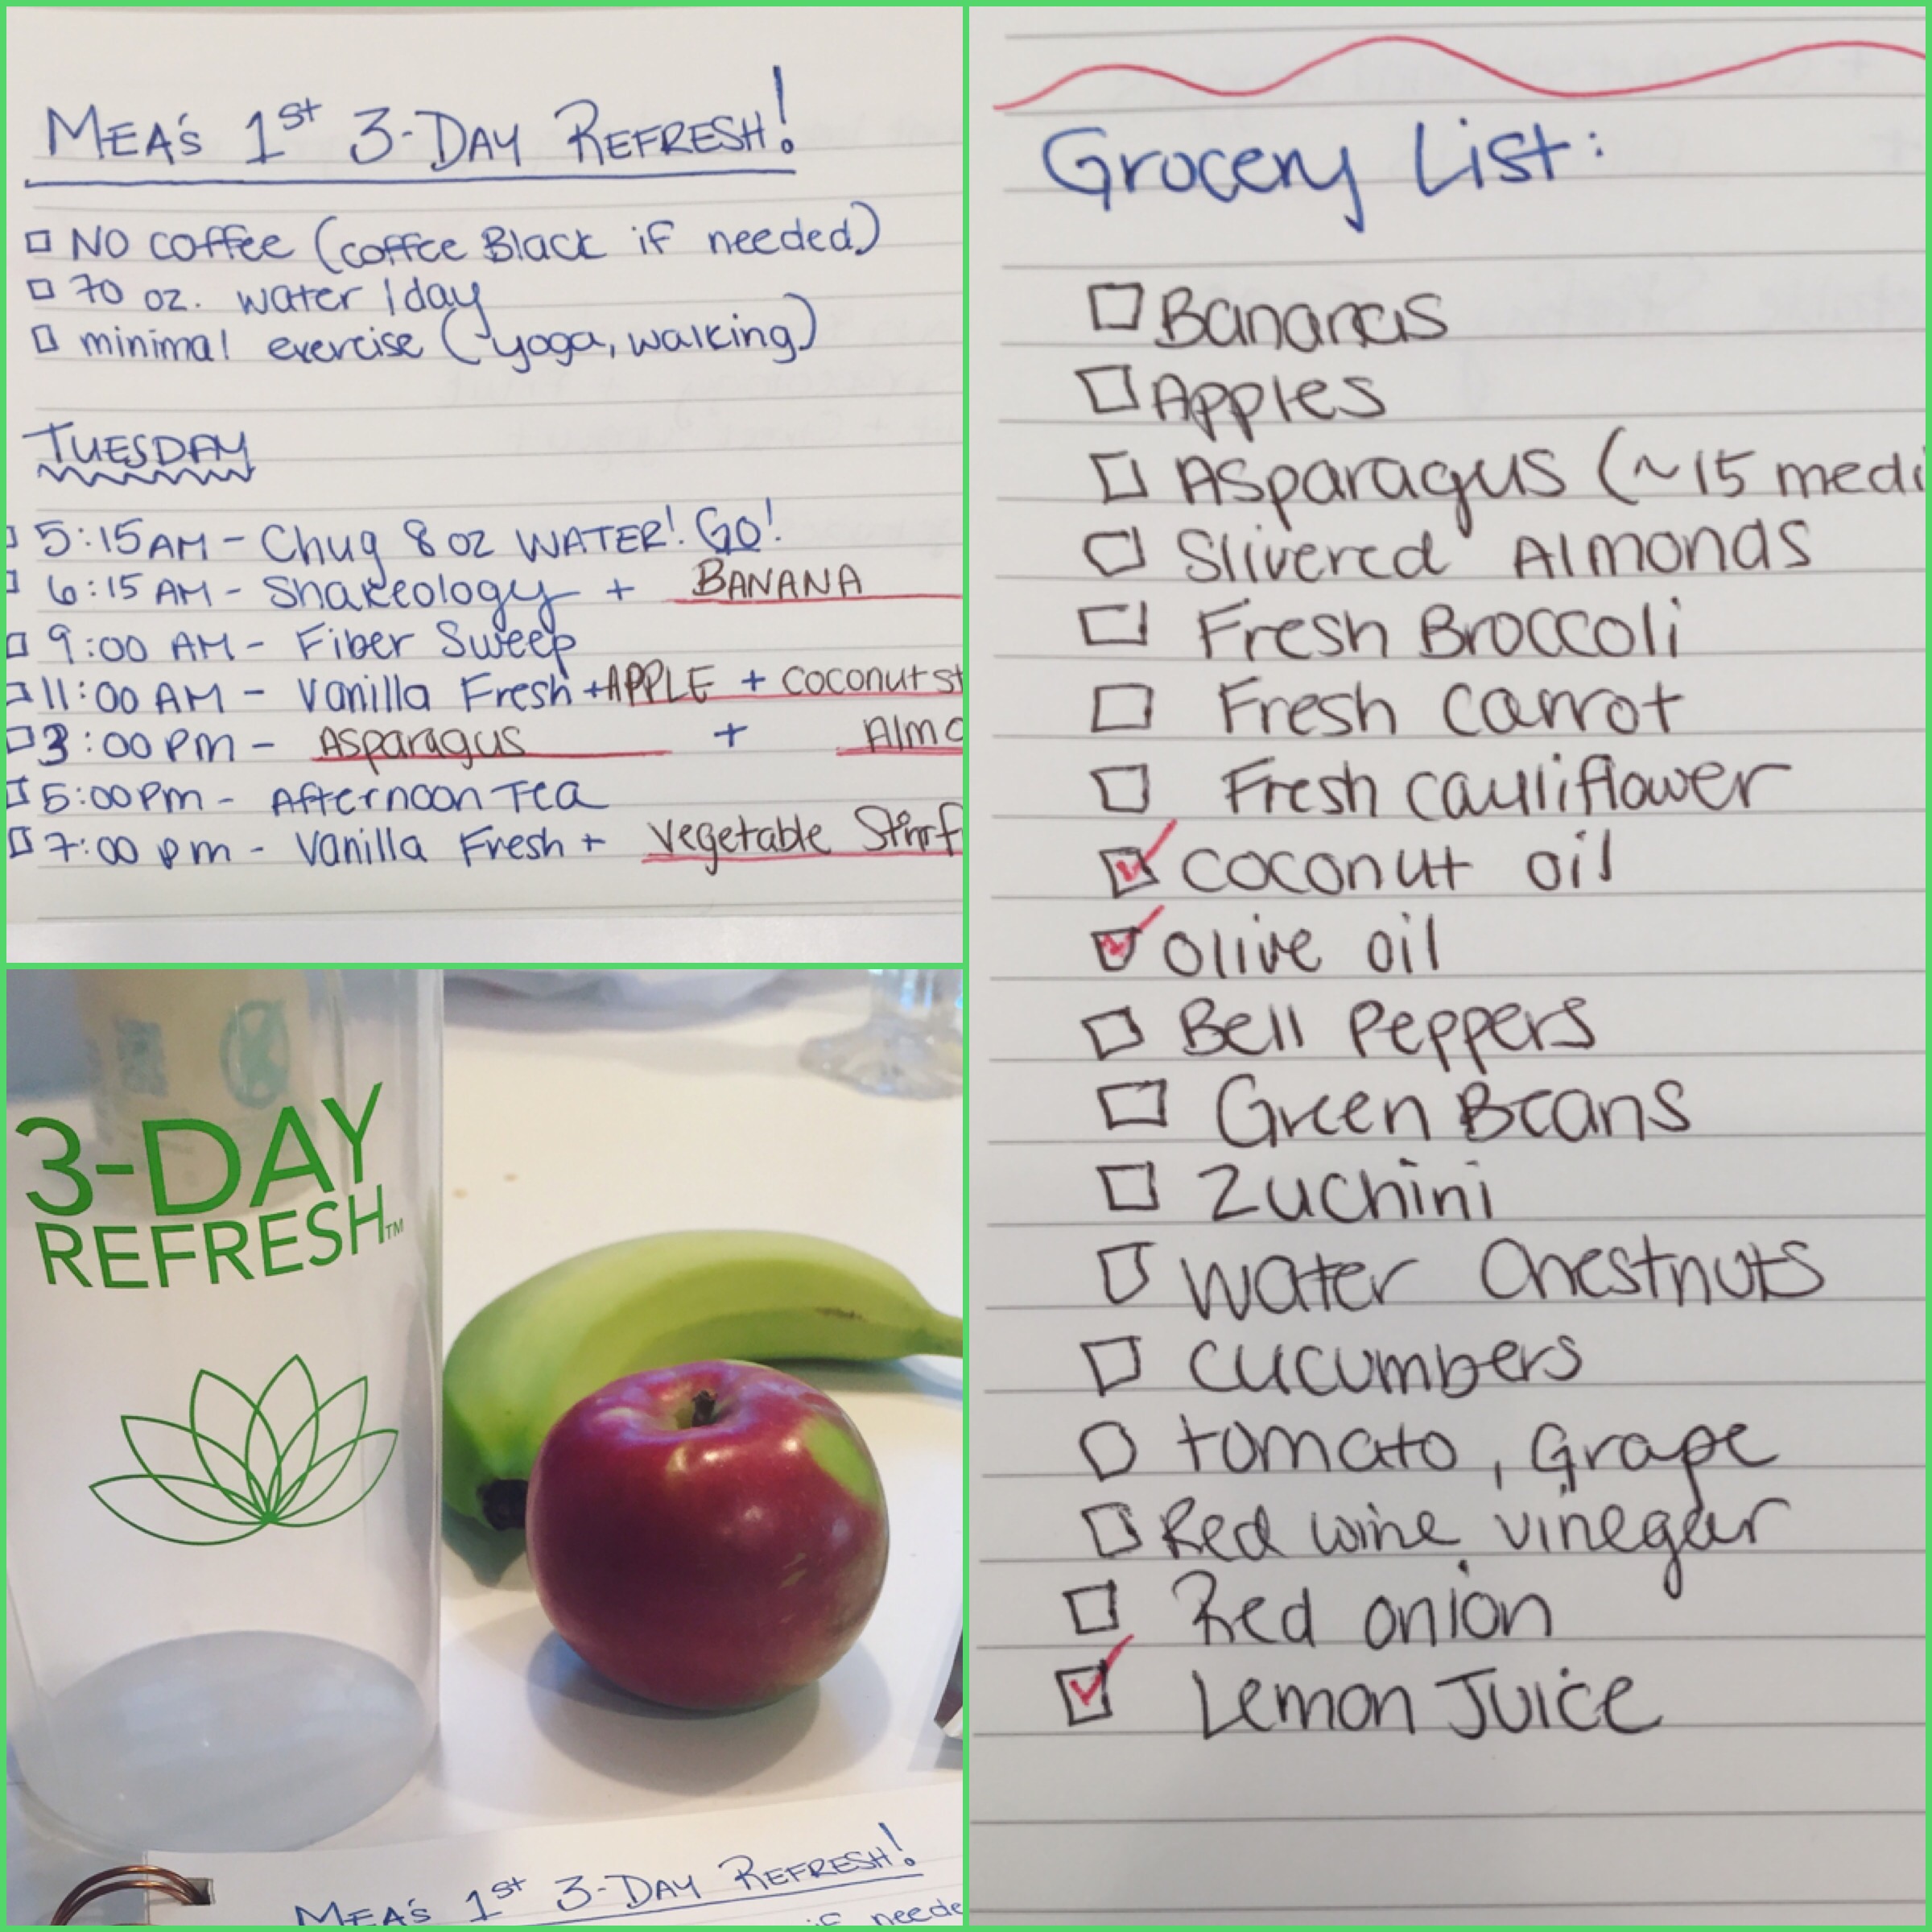 MEA'S 1st 3-DAY REFRESH!
NO coffee (coffee Black if needed)
70 oz. water /day
minimal exercise (yoga, walking)
TUESDAY
5:15 AM - Chug 8 oz WATER! GO!
6:15 AM - Shakeology + BANANA
9:00 AM - Fiber Sweep
11:00 AM - Vanilla Fresh + APPLE + coconut st
3:00 pm - Asparagus + Almo
5:00 pm - Afternoon Tea
7:00 pm - Vanilla Fresh + Vegetable Stirf
3-DAY
REFRESH™
MEA'S 1st 3-DAY REFRESH!
if neede
Grocery List:
Bananas
Apples
Asparagus (~15 medi
Slivered Almonds
Fresh Broccoli
Fresh carrot
Fresh cauliflower
coconut oil
olive oil
Bell Peppers
Green Beans
Zuchini
Water Chestnuts
cucumbers
tomato, Grape
Red wine vinegar
Red onion
Lemon Juice